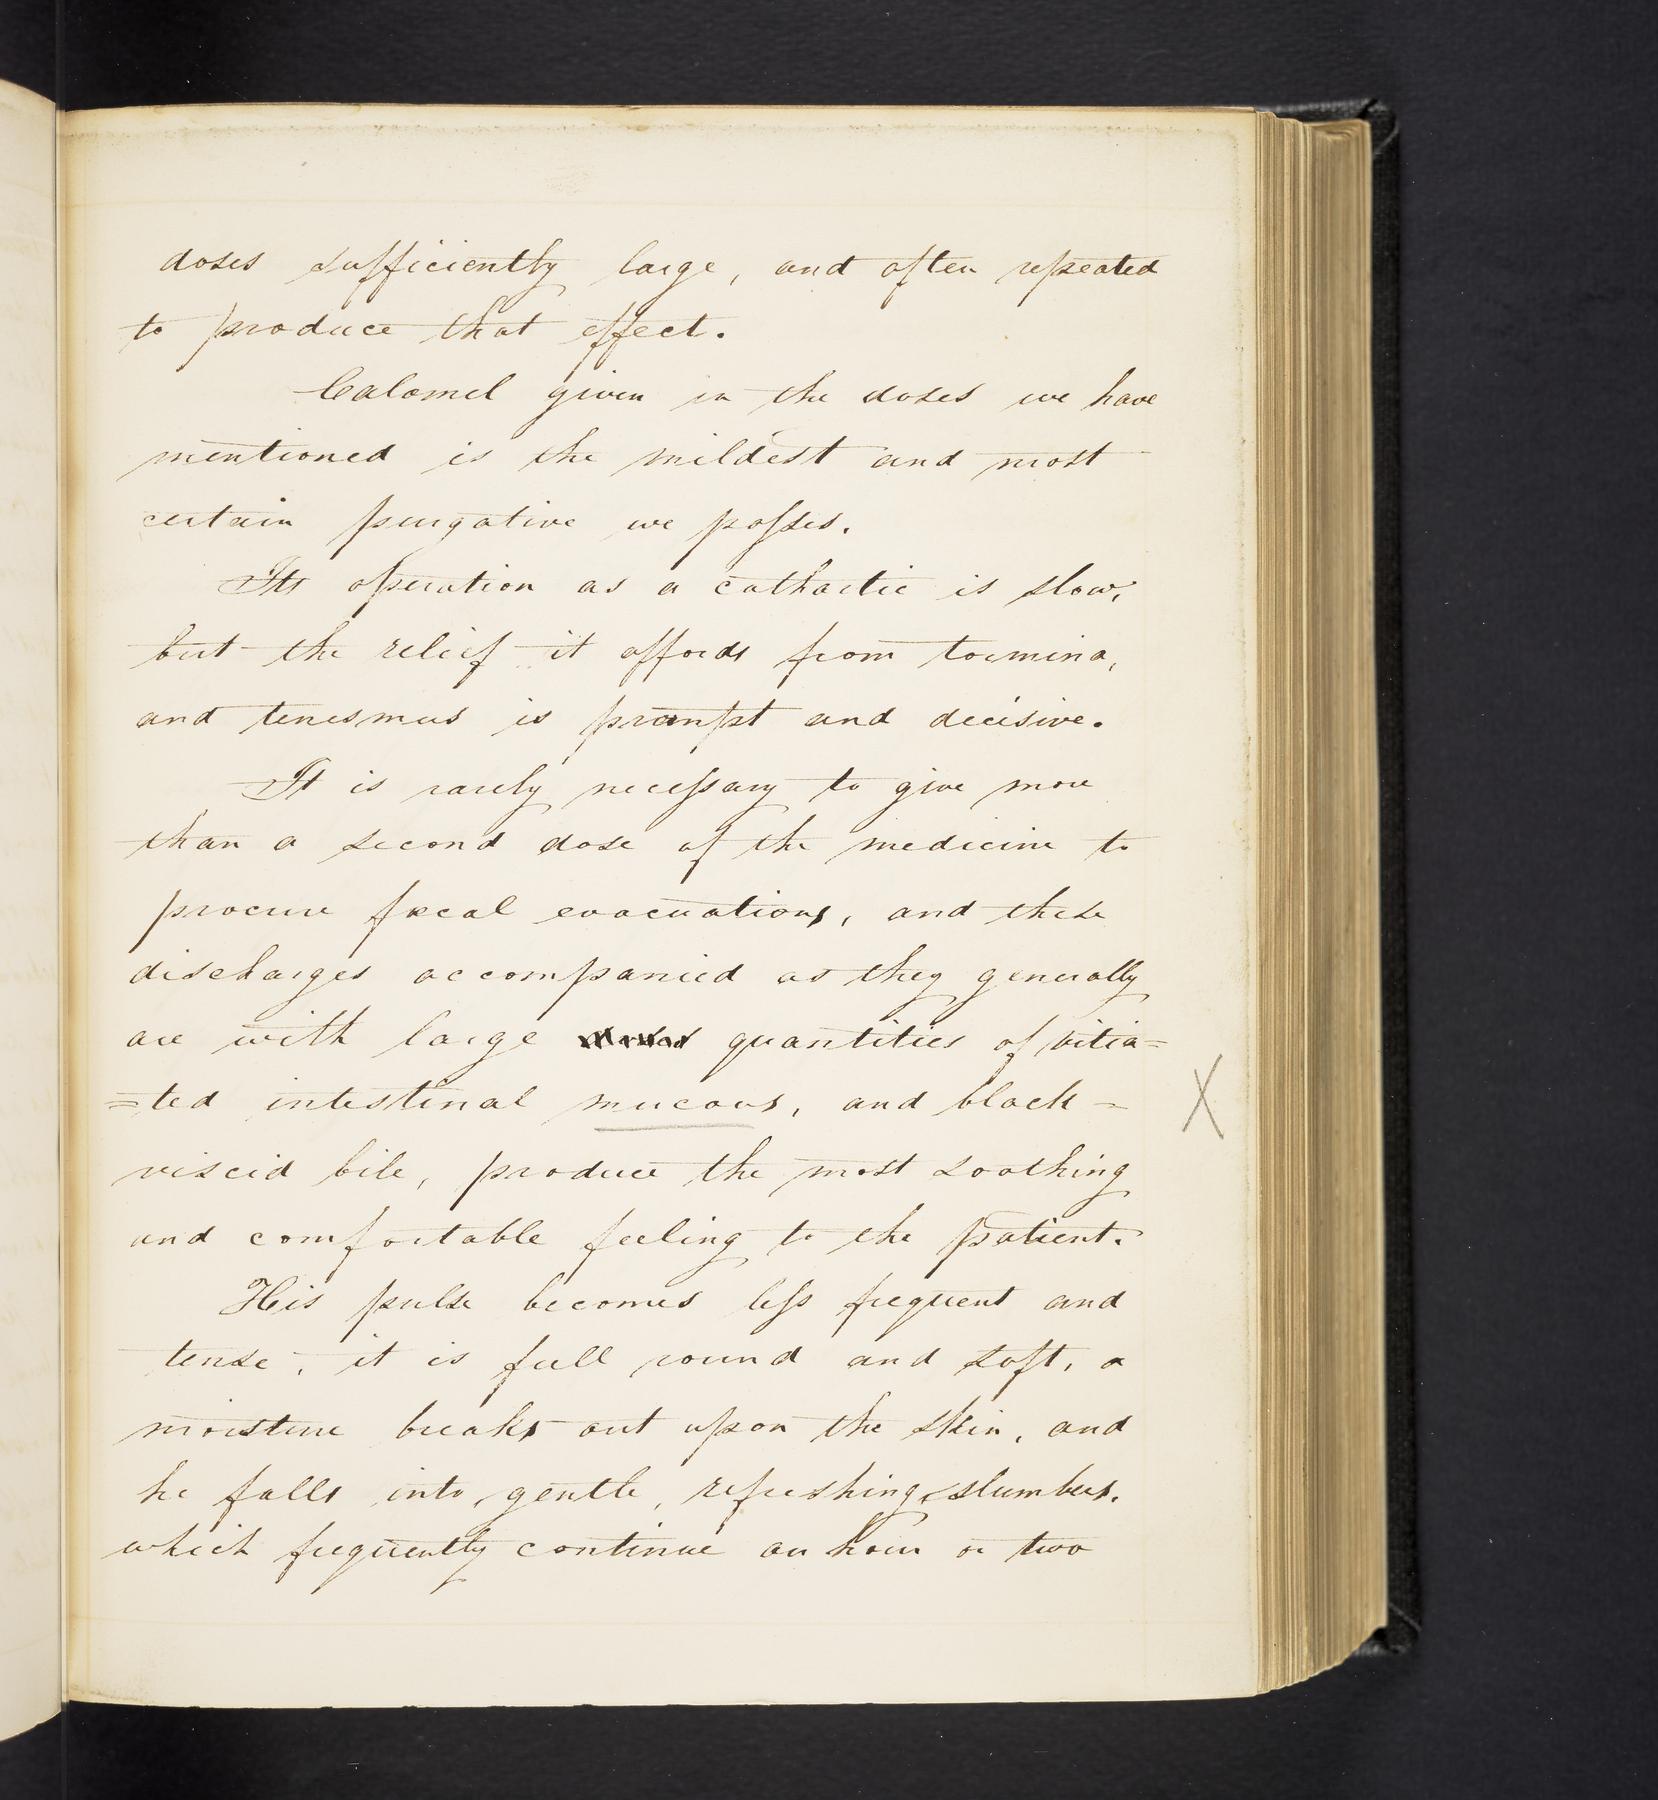 doses sufficiently large, and often repeated
to produce that effect.
Calomel given in the doses we have
mentioned is the mildest and most
certain purgative we posses.
Its operation as a cathartic is slow,
but the relief it affords from tormina,
and tenesmus is prompt and decisive.
It is rarely necessary to give more
than a second dose of the medicine to
procure fæcal evacuations, and these
discharges accompanied as they generally
are with large quantities of vitia=
=ted intestinal mucous, and black =
viscid bile, produce the most soothing
and comfortable feeling to the patient.
His pulse becomes less frequent and
tense, it is full round and soft, a
moisture breaks out upon the skin, and
he falls into, gentle, refreshing, slumbers.
which frequently continue an hour or two
X